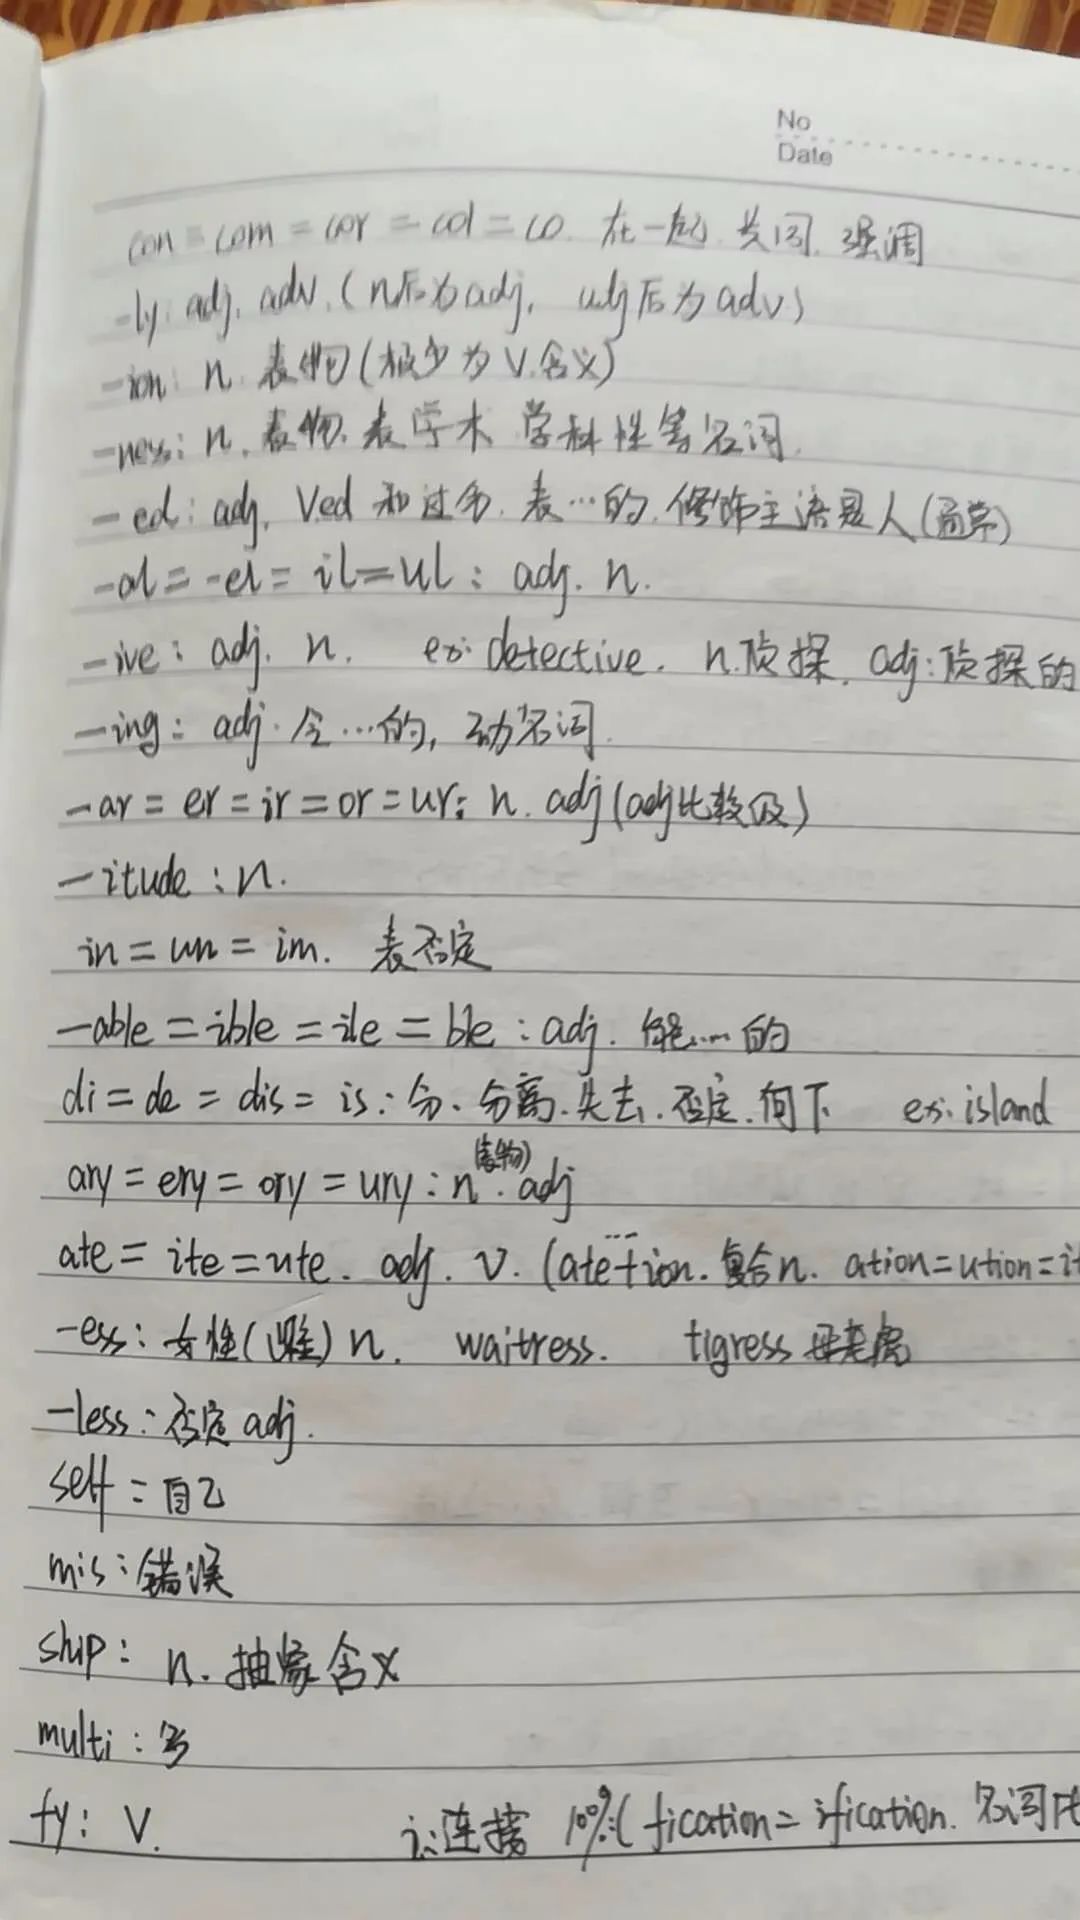 No
Date
con = com = cor = col = co. 在一起. 共同. 强调
-ly: adj. adv. (n后为adj, adj后为adv)
-ion: n. 表物 (极少为V.含义)
-ness: n. 表物. 表学术 学科性等名词.
-ed: adj. Ved 和过分. 表…的. 修饰主语是人(通常)
-al = -el = il = ul : adj. n.
-ive: adj. n. ex: detective. n.侦探. adj:侦探的
-ing: adj. 令…的, 动名词.
-ar = er = ir = or = ur: n. adj (adj比较级)
-itude : n.
in = un = im. 表否定
-able = ible = ile = ble : adj. 能…的
di = de = dis = is : 分. 分离. 失去. 否定. 向下 ex: island
ary = ery = ory = ury : n(表物). adj
ate = ite = ute. adj. v. (ate+ion. 复合n. ation = ution = it
-ess: 女性(雌) n. waitress. tigress 母老虎
-less : 否定 adj.
self = 自己
mis : 错误
ship : n. 抽象含义
multi : 多
fy: V. i:连接 10%:( fication = ification. 名词